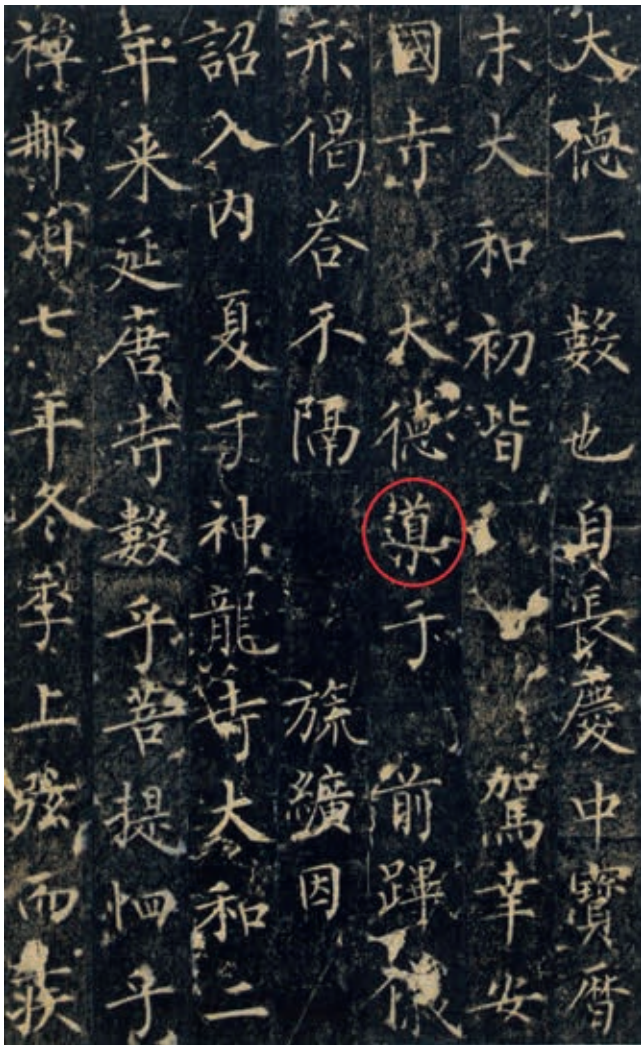 大德一數也自長慶中寶曆
末大和初皆駕幸安
國寺大德導于前蹕
形偈荅不隔旒纊因
詔入内夏于神龍寺大和二
年来延唐寺數乎菩提乎
禅那洎七年冬季上弦而疾